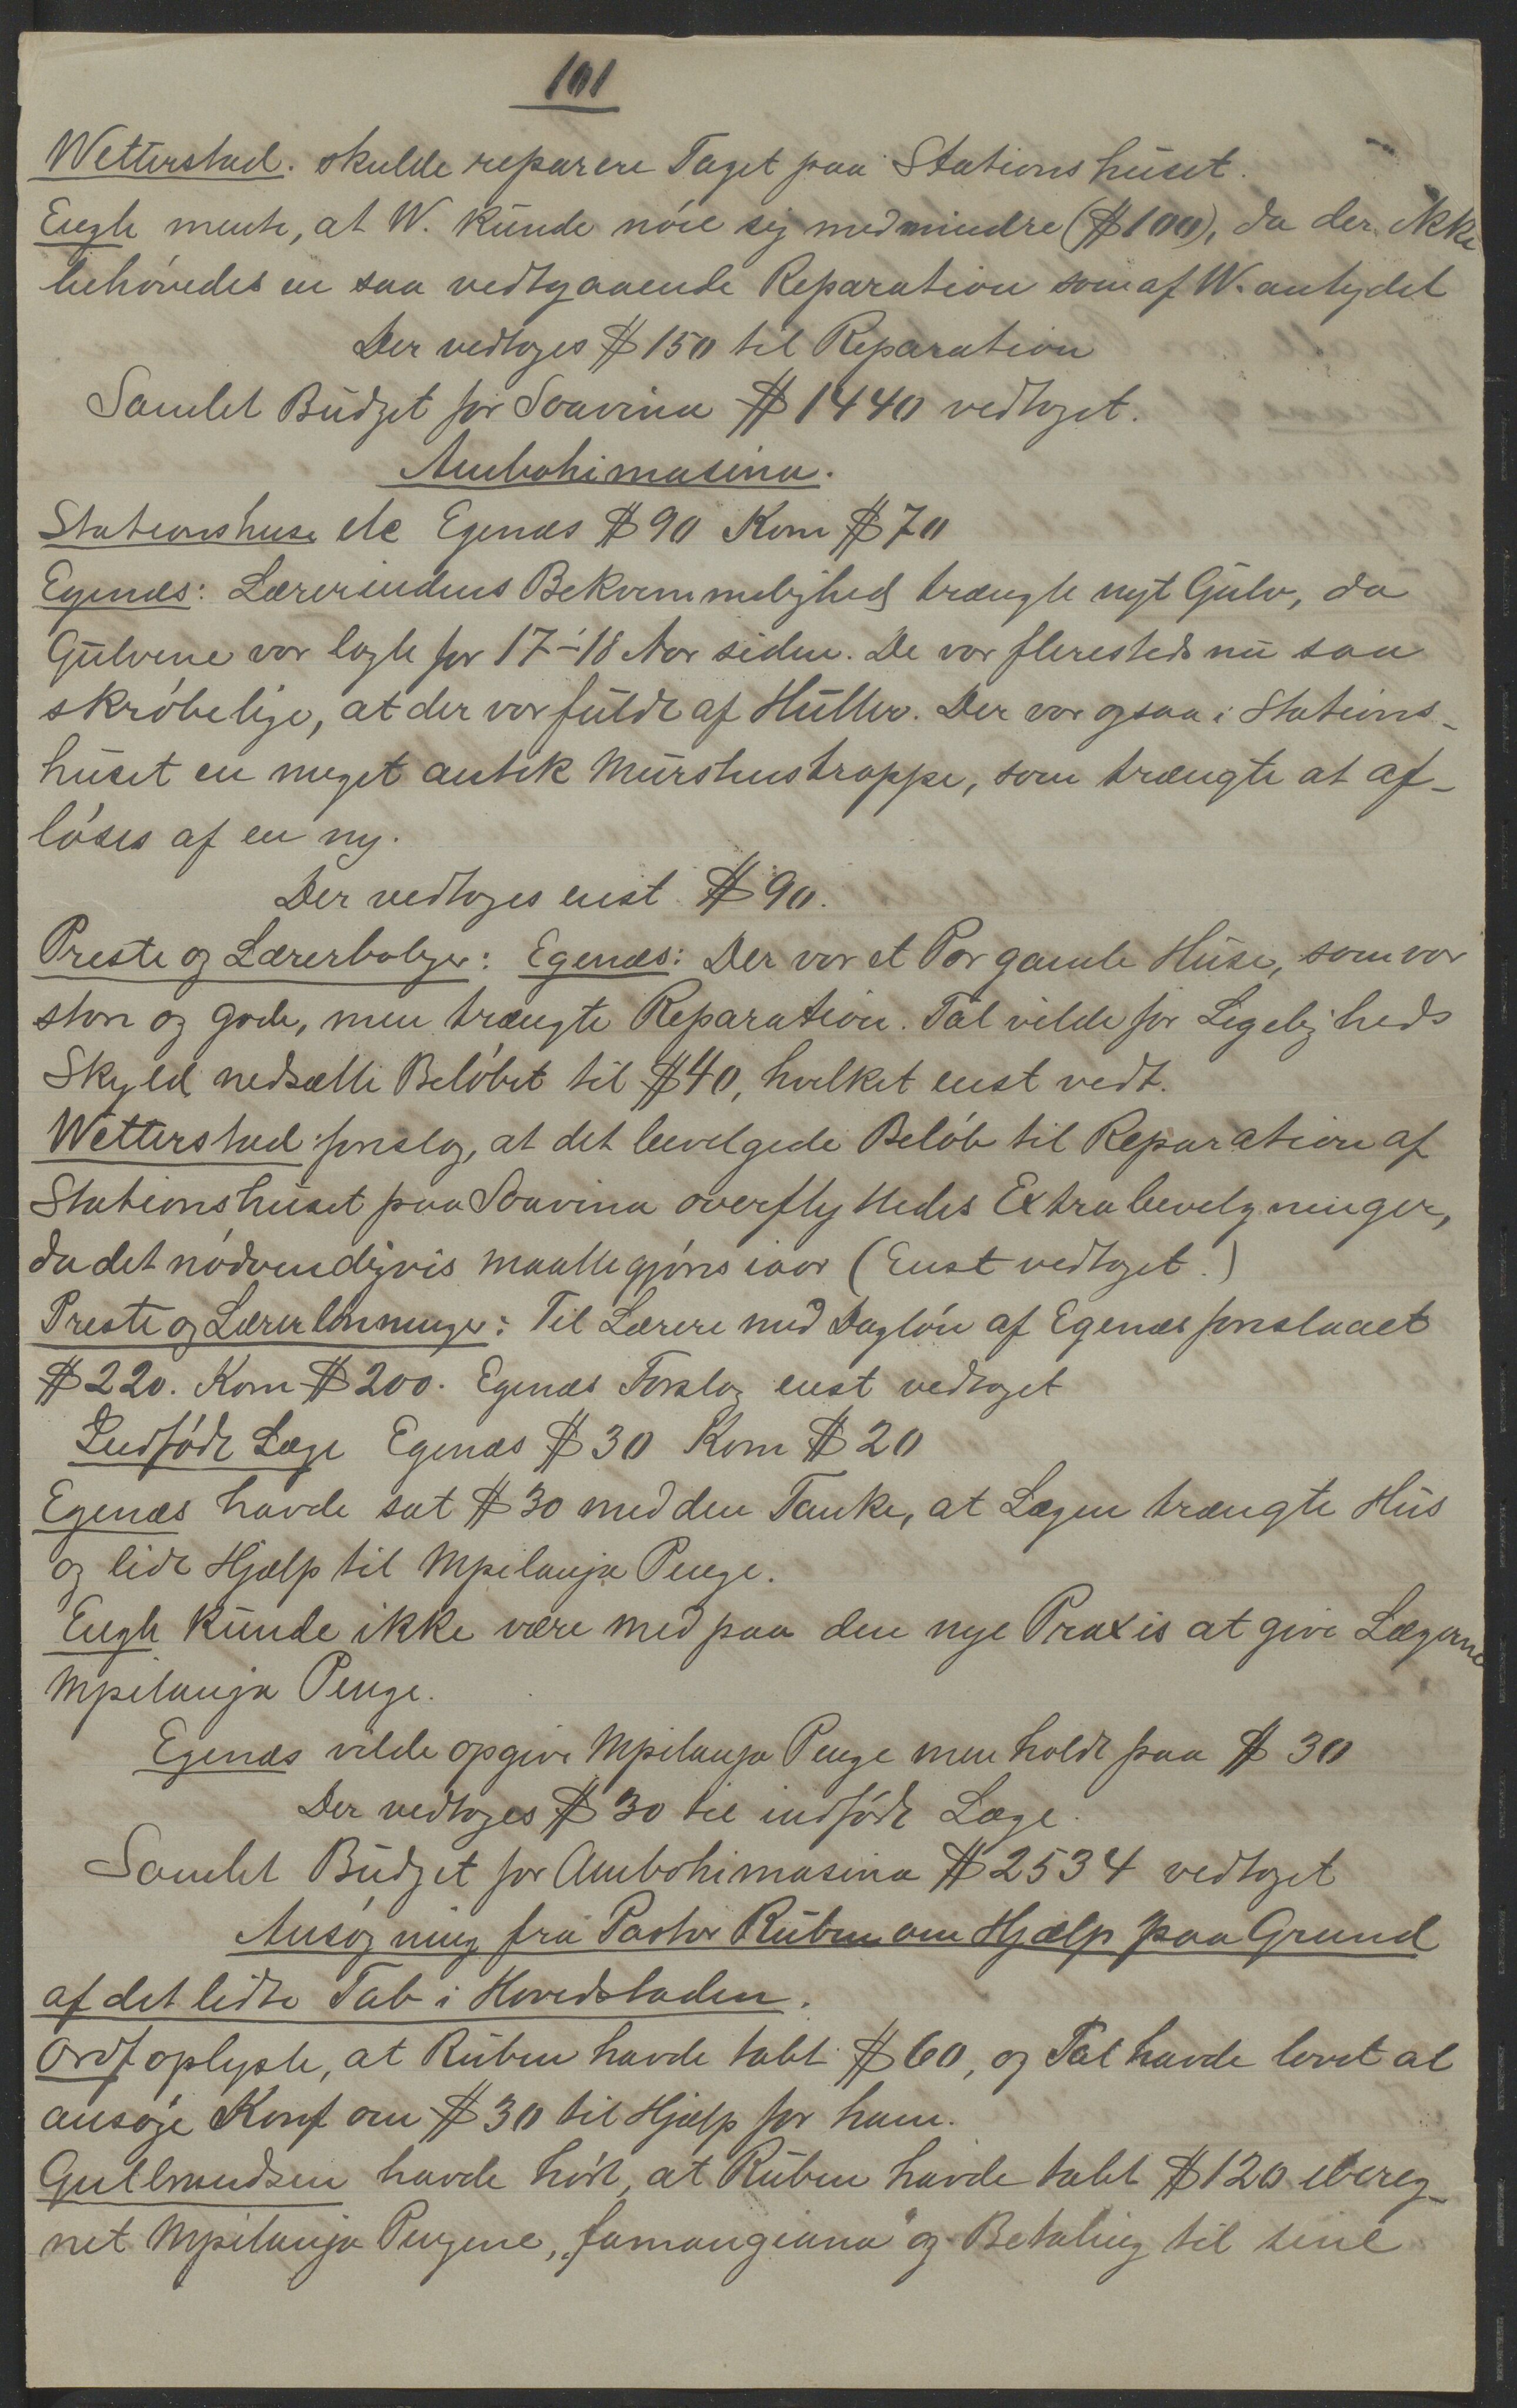 101
Wetterstad. skulde reparere Taget paa Stationshuset.
Engh mente, at W. kunde nöie sig med mindre ($100), da der ikke
behövedes en saa vedtgaaende Reparation som af W. antydet
Der vedtoges $150 til Reparation
Samlet Budget for Soavina $1440 vedtaget.
Ambohimasina.
Stationshuse etc Egenæs $90 Kom $70
Egenæs: Lærerindens Bekvemmelighed trængte nyt Gulv, da
Gulvene var lagte for 17-18 Aar siden. De var flerested nu saa
skröbelige, at der var fuldt af Huller. Der var ogsaa i Stations-
huset en meget antik Murstenstrappe, som trængte at af-
löses af en ny.
Der vedtoges enst $90.
Preste og Lærerboliger: Egenæs: Der var et Par gamle Huse, som var
store og gode, men trængte Reparation. Tal vilde for Ligeligheds
Skyld nedsætte Belöbet til $40, hvilket enst vedt.
Wetterstad: foreslog, at det bevilgede Belöb til Reparation af
Stationshuset paa Soavina overflyttedes Extrabevilgninger,
da det nödvendigvis maatte gjöres iaar (Enst vedtaget.)
Preste og Lærerlönninger: Til Lærere med Daglön af Egenæs foreslaaet
$220. Kom $200. Egenæs Forslag enst vedtaget
Indfödt Læge Egenæs $30 Kom $20
Egenæs havde sat $30 med den Tanke, at Lægen trængte Hus
og lidt Hjælp til Mpilanja Penge.
Engh kunde ikke være med paa den nye Praxis at give Lægerne
Mpilanja Penge.
Egenæs vilde opgive Mpilanja Penge men holdt paa $30
Der vedtoges $30 til indfödt Læge.
Samlet Budget for Ambohimasina $2534 vedtaget
Ansögning fra Pastor Ruben om Hjælp paa Grund
af det lidte Tab i Hovedstaden.
Ordf oplyste, at Ruben havde tabt $60, og Tal havde lovet at
ansöge Konf om $30 til Hjælp for ham.
Gulbrandsen havde hört, at Ruben havde tabt $120 ibereg-
net Mpilanja Pengene, "famangiana" og Betaling til sine